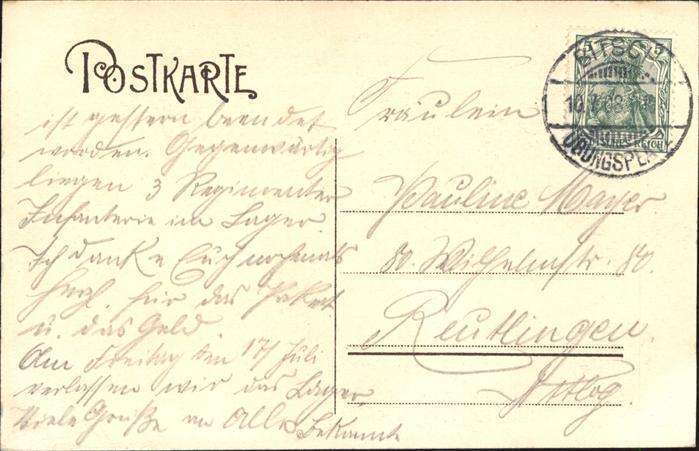 POSTKARTE
ist gestern beendet
worden. Gegenwärtig
liegen 3 Regimenter
Infanterie im Lager.
Ich danke Euch nochmals
herzl. für das Paket
u. das Geld.
Am Freitag den 17. Juli
verlassen wir das Lager.
Viele Grüße an Alle
Bekannte
BITSCH
ÜBUNGSPLATZ
Fräulein
Pauline Mayer
80. Wilhelmstr. 80.
Reutlingen.
Wttbg.